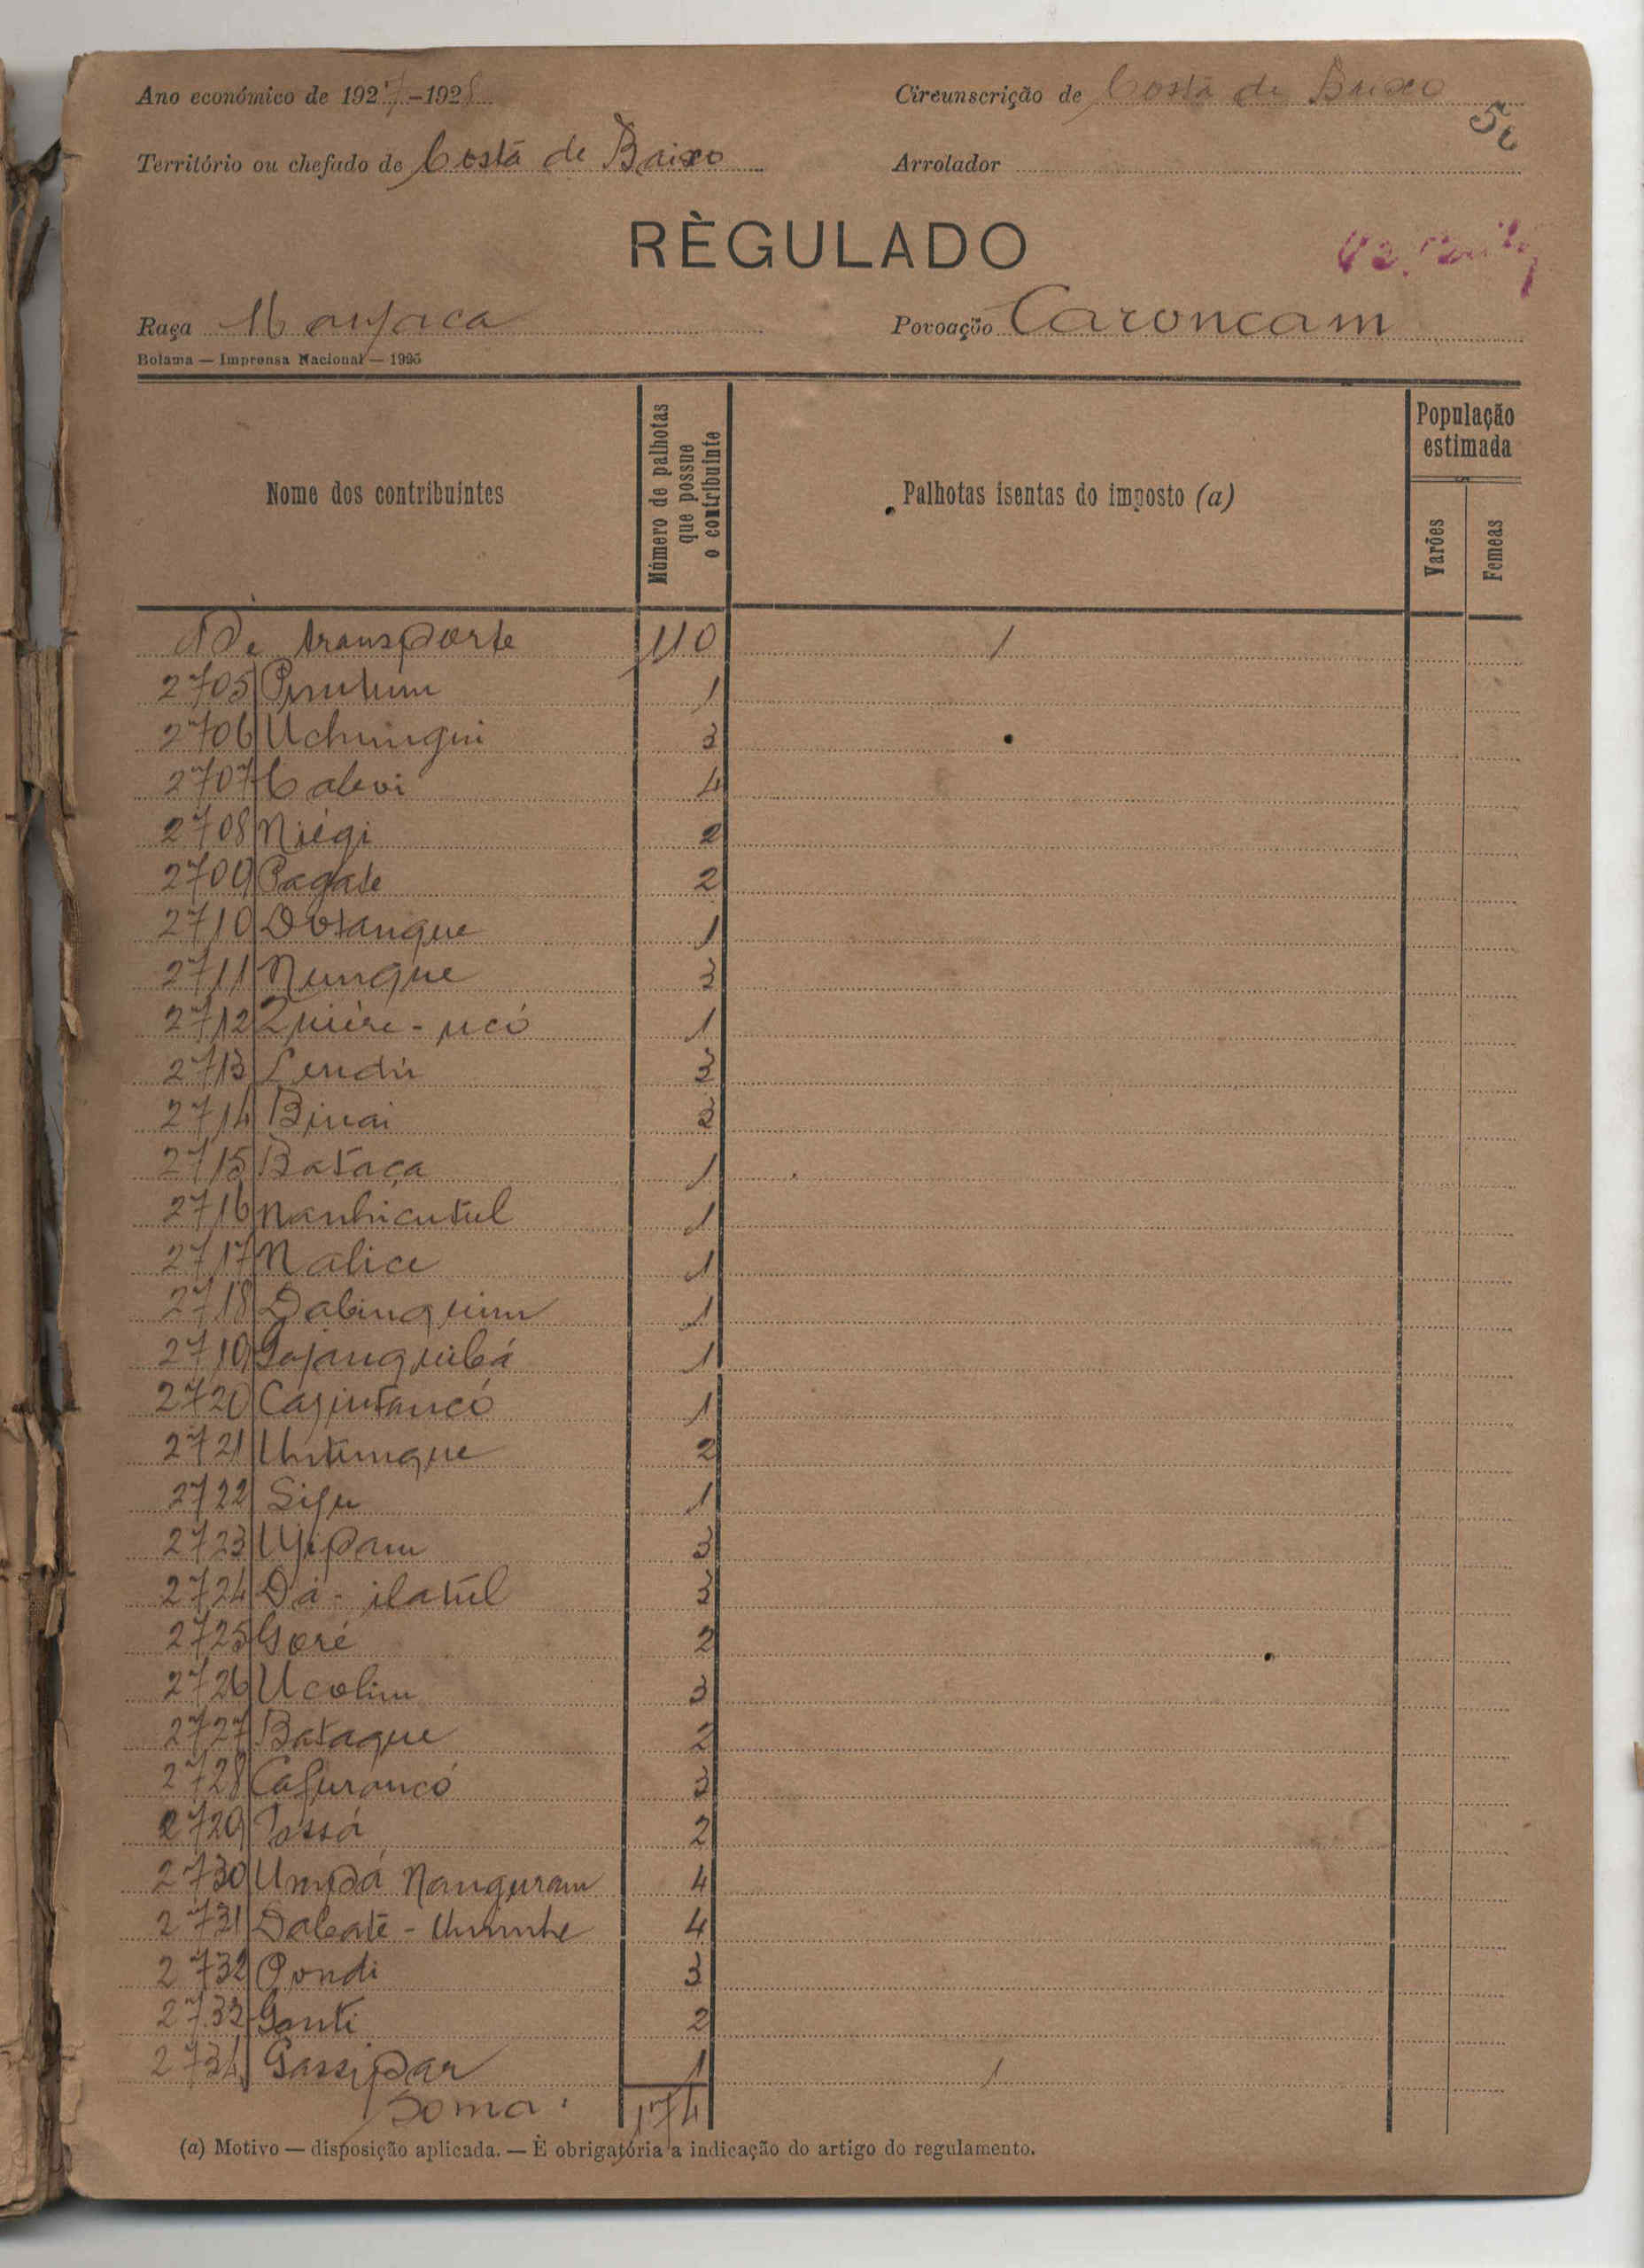 Ano económico de 1927-1928
Circunscrição de Costa de Baixo
50
Território ou chefado de Costa de Baixo
Arrolador
RÈGULADO
Raça Manjaca
Povoação Caroncam
Bolama — Imprensa Nacional — 1925
Nome dos contribuintes
Número de palhotas que possue o contribuinte
Palhotas isentas do imposto (a)
População estimada
Varões
Femeas
De transporte 110 1
2705 1
2706 Uchungui 3
2707 Calevi 4
2708 Niègi 2
2709 Pagate 2
2710 Dotangue 1
2711 Nungue 3
2712 Quière-ucó 1
2713 Lendú 3
2714 Binai 2
2715 Bataça 1
2716 Nanhicutul 1
2717 Nalice 1
2718 Dabinquim 1
2719 1
2720 1
2721 Untingue 2
2722 1
2723 3
2724 Dá-ilatúl 3
2725 Goré 2
2726 Ucolim 3
2727 Bataque 2
2728 Cafurancó 3
2729 Passá 2
2730 Umpá Nanguram 4
2731 4
2732 Pondi 3
2733 Ganti 2
2734 Gassipar 1 1
Soma: 174
(a) Motivo — disposição aplicada. — È obrigatória a indicação do artigo do regulamento.